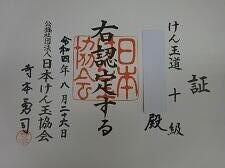 証
けん玉道 十級
殿
右認定する
令和四年 八月 二十六日
公益社団法人 日本けん玉協会
寺本勇司
日本
協会